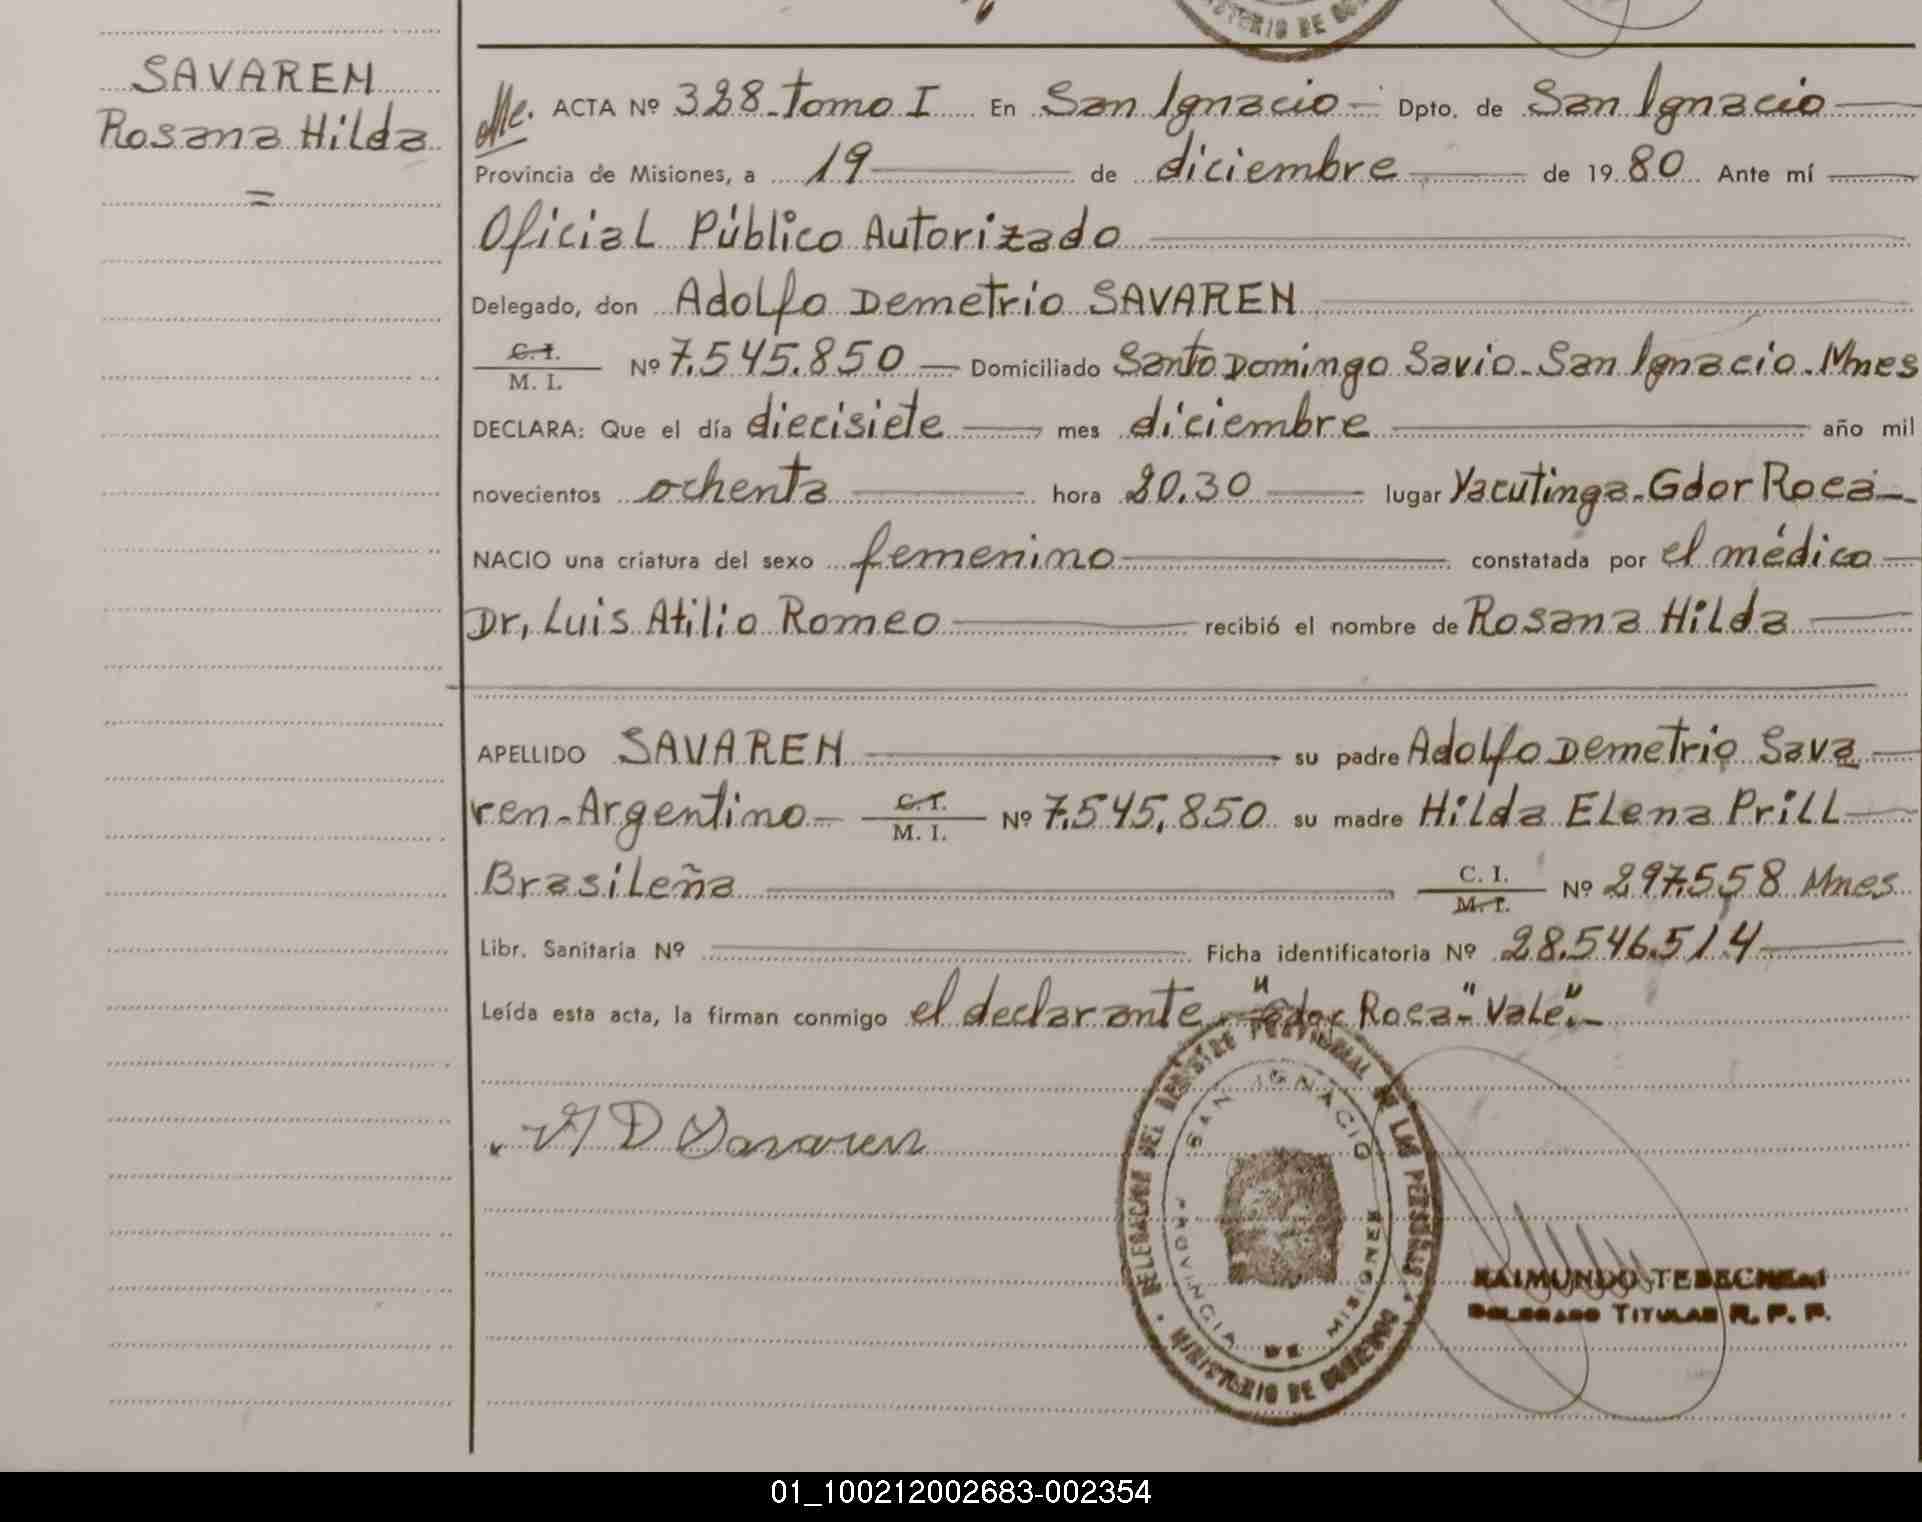 SAVAREN
Rosana Hilda
=
ACTA Nº 328 tomo I En San Ignacio - Dpto. de San Ignacio
Provincia de Misiones, a 19 de diciembre de 1980 Ante mí
Oficial Público Autorizado
Delegado, don Adolfo Demetrio SAVAREN
C. I. / M. I. Nº 7.545.850 Domiciliado Santo Domingo Savio - San Ignacio - Mnes
DECLARA: Que el día diecisiete mes diciembre año mil
novecientos ochenta hora 20.30 lugar Yacutinga - Gdor Roca
NACIO una criatura del sexo femenino constatada por el médico
Dr. Luis Atilio Romeo recibió el nombre de Rosana Hilda
APELLIDO SAVAREN su padre Adolfo Demetrio Sava
ren - Argentino - C. I. / M. I. Nº 7.545.850 su madre Hilda Elena Prill
Brasileña C. I. / M. I. Nº 297.558 Mnes
Libr. Sanitaria Nº Ficha identificatoria Nº 28.546.514
Leída esta acta, la firman conmigo el declarante - "Gdor Roca" - "Vale" -
A D Savaren
DELEGACION DEL REGISTRO PROVINCIAL DE LAS PERSONAS
SAN IGNACIO
PROVINCIA DE MISIONES
MINISTERIO DE GOBIERNO
RAIMUNDO
DELEGADO TITULAR R. P. P.
01_100212002683-002354